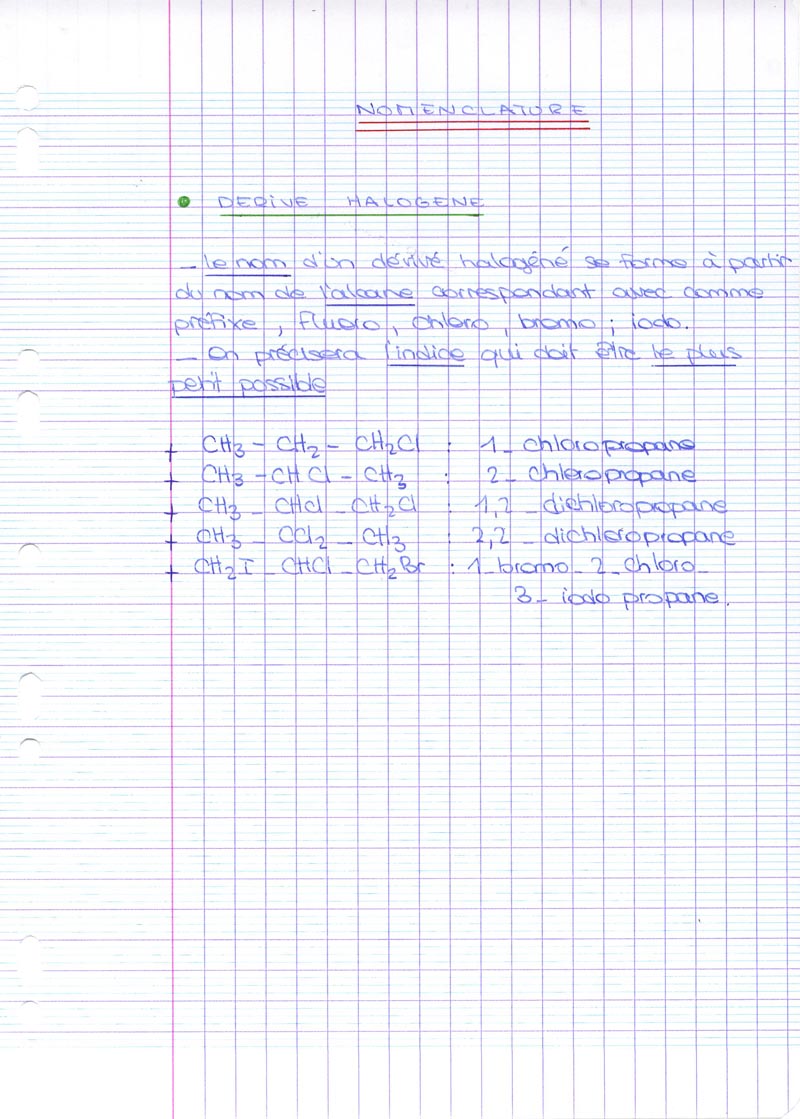 NOMENCLATURE
• DERIVE HALOGENE
_ le nom d'un dérivé halogéné se forme à partir
du nom de l'alcane correspondant avec comme
préfixe, fluoro, chloro, bromo ; iodo.
_ On précisera l'indice qui doit être le plus
petit possible
+ CH₃ - CH₂ - CH₂Cl : 1_ chloropropane
+ CH₃ - CHCl - CH₃ : 2_ chloropropane
+ CH₃ - CHCl - CH₂Cl : 1,2 _ dichloropropane
+ CH₃ - CCl₂ - CH₃ : 2,2 _ dichloropropane
+ CH₂I _ CHCl _ CH₂Br : 1_bromo_ 2_ chloro_
3_ iodo propane.